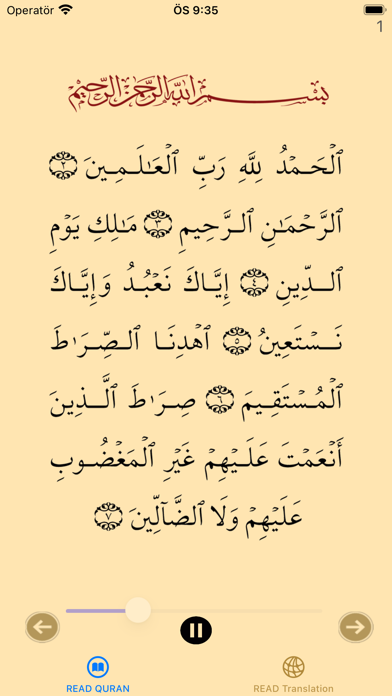 Operatör ÖS 9:35
1
بسم الله الرحمن الرحيم
ٱلۡحَمۡدُ لِلَّهِ رَبِّ ٱلۡعَٰلَمِينَ ٢
ٱلرَّحۡمَٰنِ ٱلرَّحِيمِ ٣ مَٰلِكِ يَوۡمِ
ٱلدِّينِ ٤ إِيَّاكَ نَعۡبُدُ وَإِيَّاكَ
نَسۡتَعِينُ ٥ ٱهۡدِنَا ٱلصِّرَٰطَ
ٱلۡمُسۡتَقِيمَ ٦ صِرَٰطَ ٱلَّذِينَ
أَنۡعَمۡتَ عَلَيۡهِمۡ غَيۡرِ ٱلۡمَغۡضُوبِ
عَلَيۡهِمۡ وَلَا ٱلضَّآلِّينَ ٧
READ QURAN READ Translation